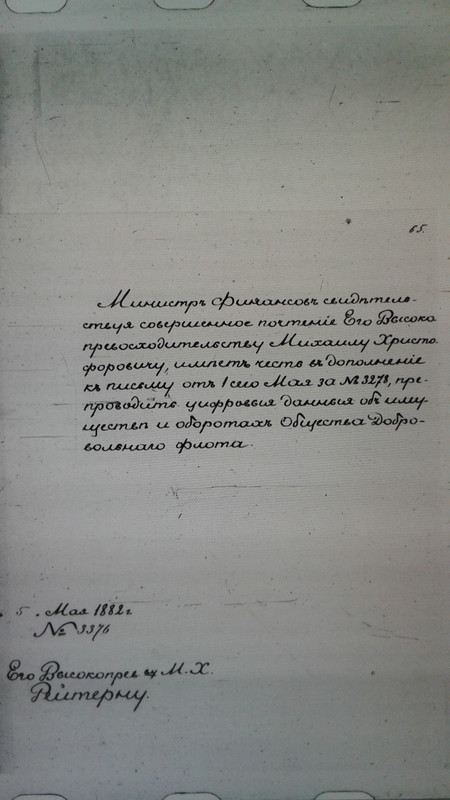 65.
Министръ Финансовъ свидѣтель-
ствуя совершенное почтеніе Его Высоко
превосходительству Михаилу Христо
форовичу, имѣетъ честь въ дополненіе
къ письму отъ 1 сего Мая за № 3278, пре-
проводить цифровыя данныя объ иму-
ществѣ и оборотахъ Общества Добро-
вольнаго флота.
5 . Мая 1882 г
№ 3376
Его Высокопрев М. Х.
Рейтерну.